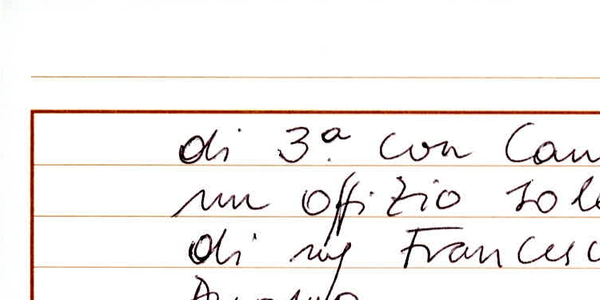 di 3ª con Can
un offizio sole
di sig Francesc